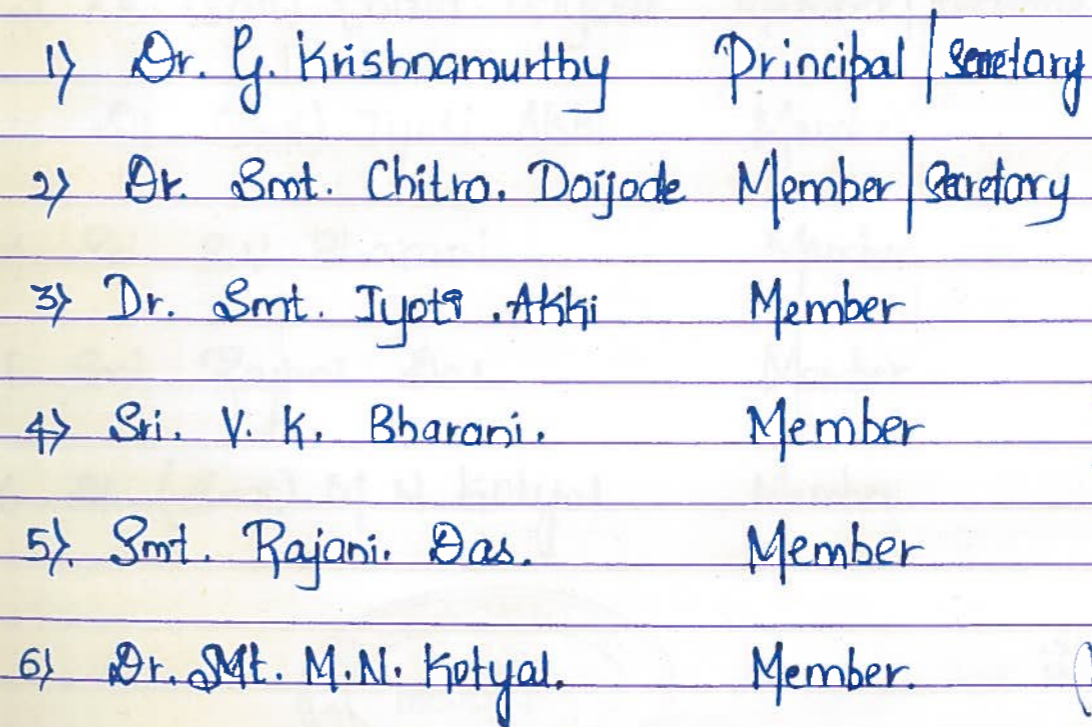 1) Dr. G. Krishnamurthy Principal / Secretary
2) Dr. Smt. Chitra. Doijode Member / Secretary
3) Dr. Smt. Jyoti .Akki Member
4) Sri. V. K. Bharani. Member
5). Smt. Rajani. Das. Member
6) Dr. SMt. M.N. Kotyal. Member.